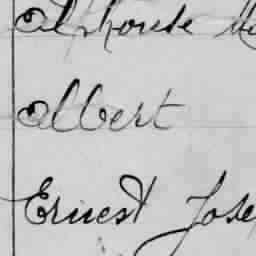 Alphonse
Albert
Ernest Jose